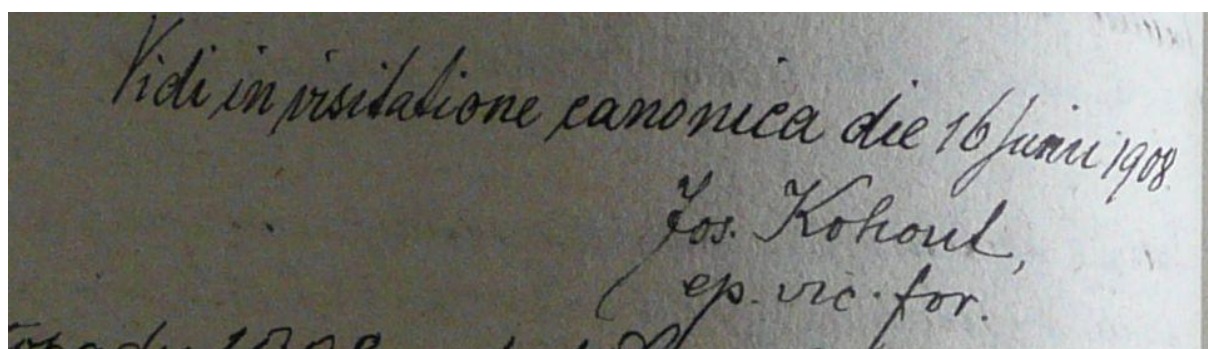 Vidi in visitatione canonica die 16 Junii 1908.
Jos. Kohout,
ep. vic. for.
1908